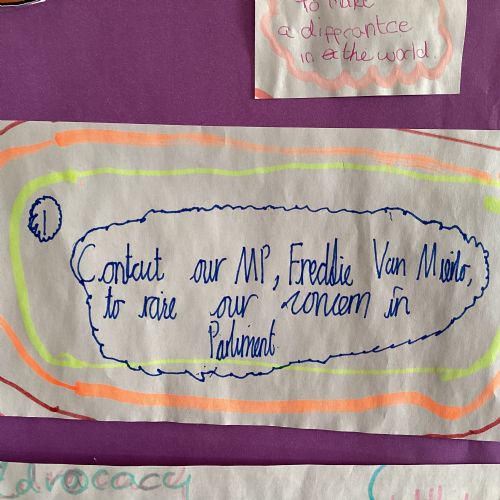 to make
a differantce
in the world.
1
Contact our MP, Freddie Van Mierlo,
to raire our concern in
Parliment.